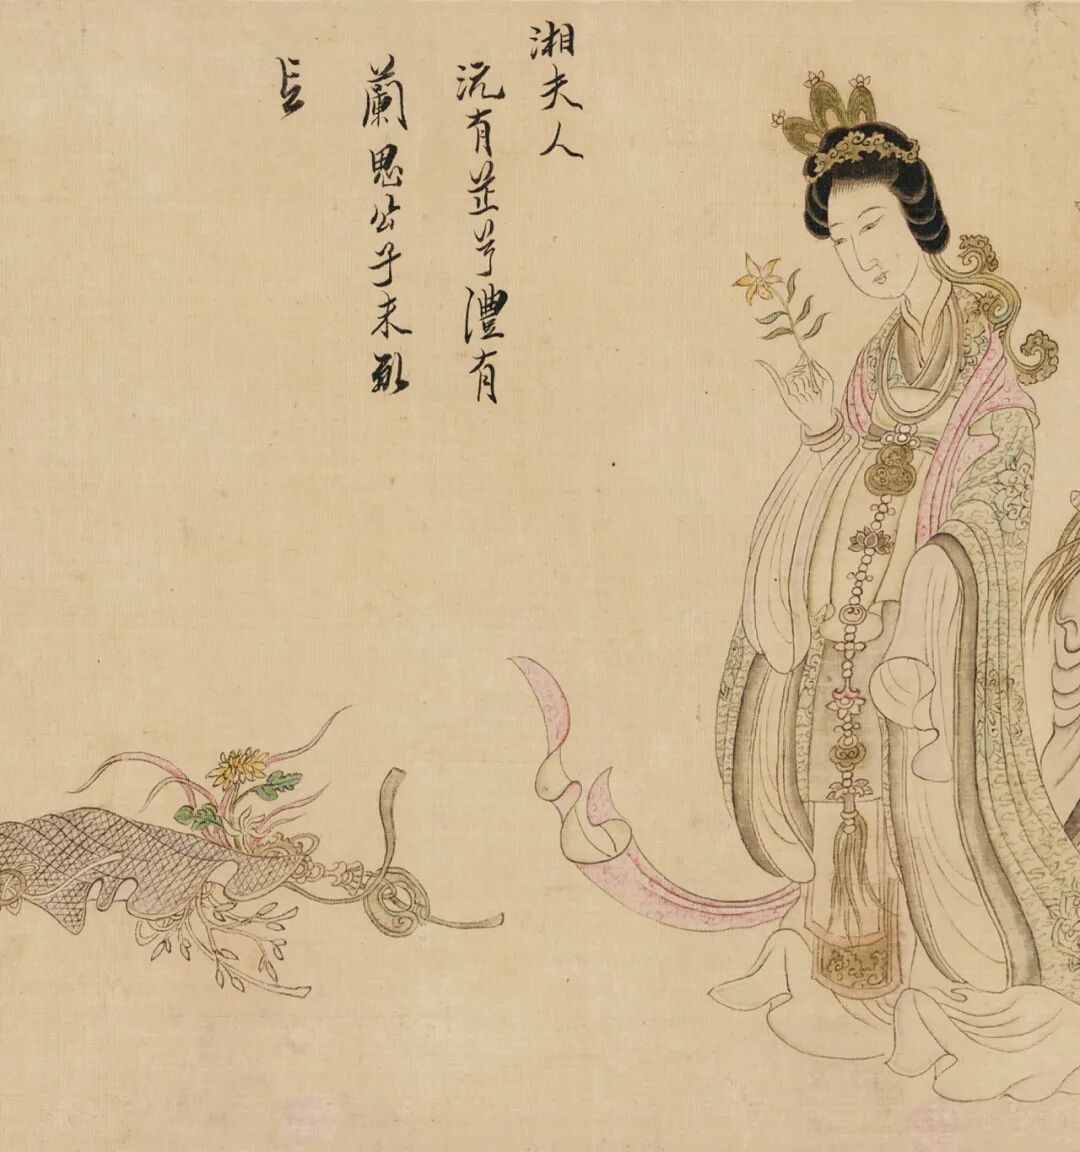 湘夫人
沅有芷兮澧有
蘭思公子未敢
言